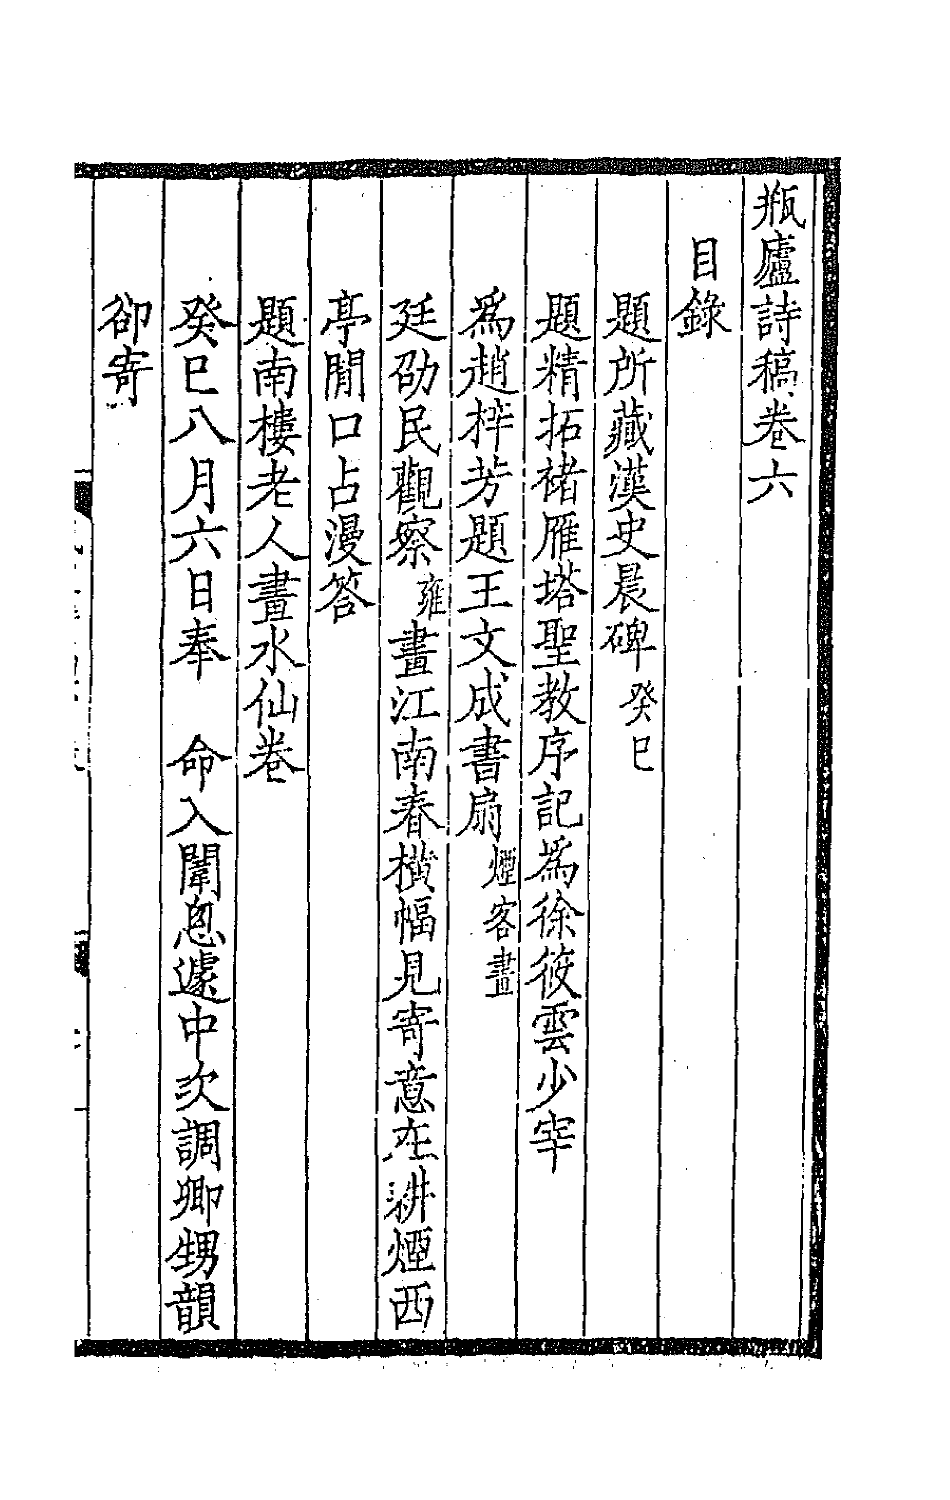 瓶廬詩稿卷六
目錄
題所藏漢史晨碑 癸巳
題精拓褚雁塔聖教序記為徐筱雲少宰
為趙梓芳題王文成書扇 煙客畫
廷劭民觀察 雍 畫江南春橫幅見寄意在耕煙西
亭閒口占漫答
題南樓老人畫水仙卷
癸巳八月六日奉 命入闈恩遽中次調卿甥韻
卻寄